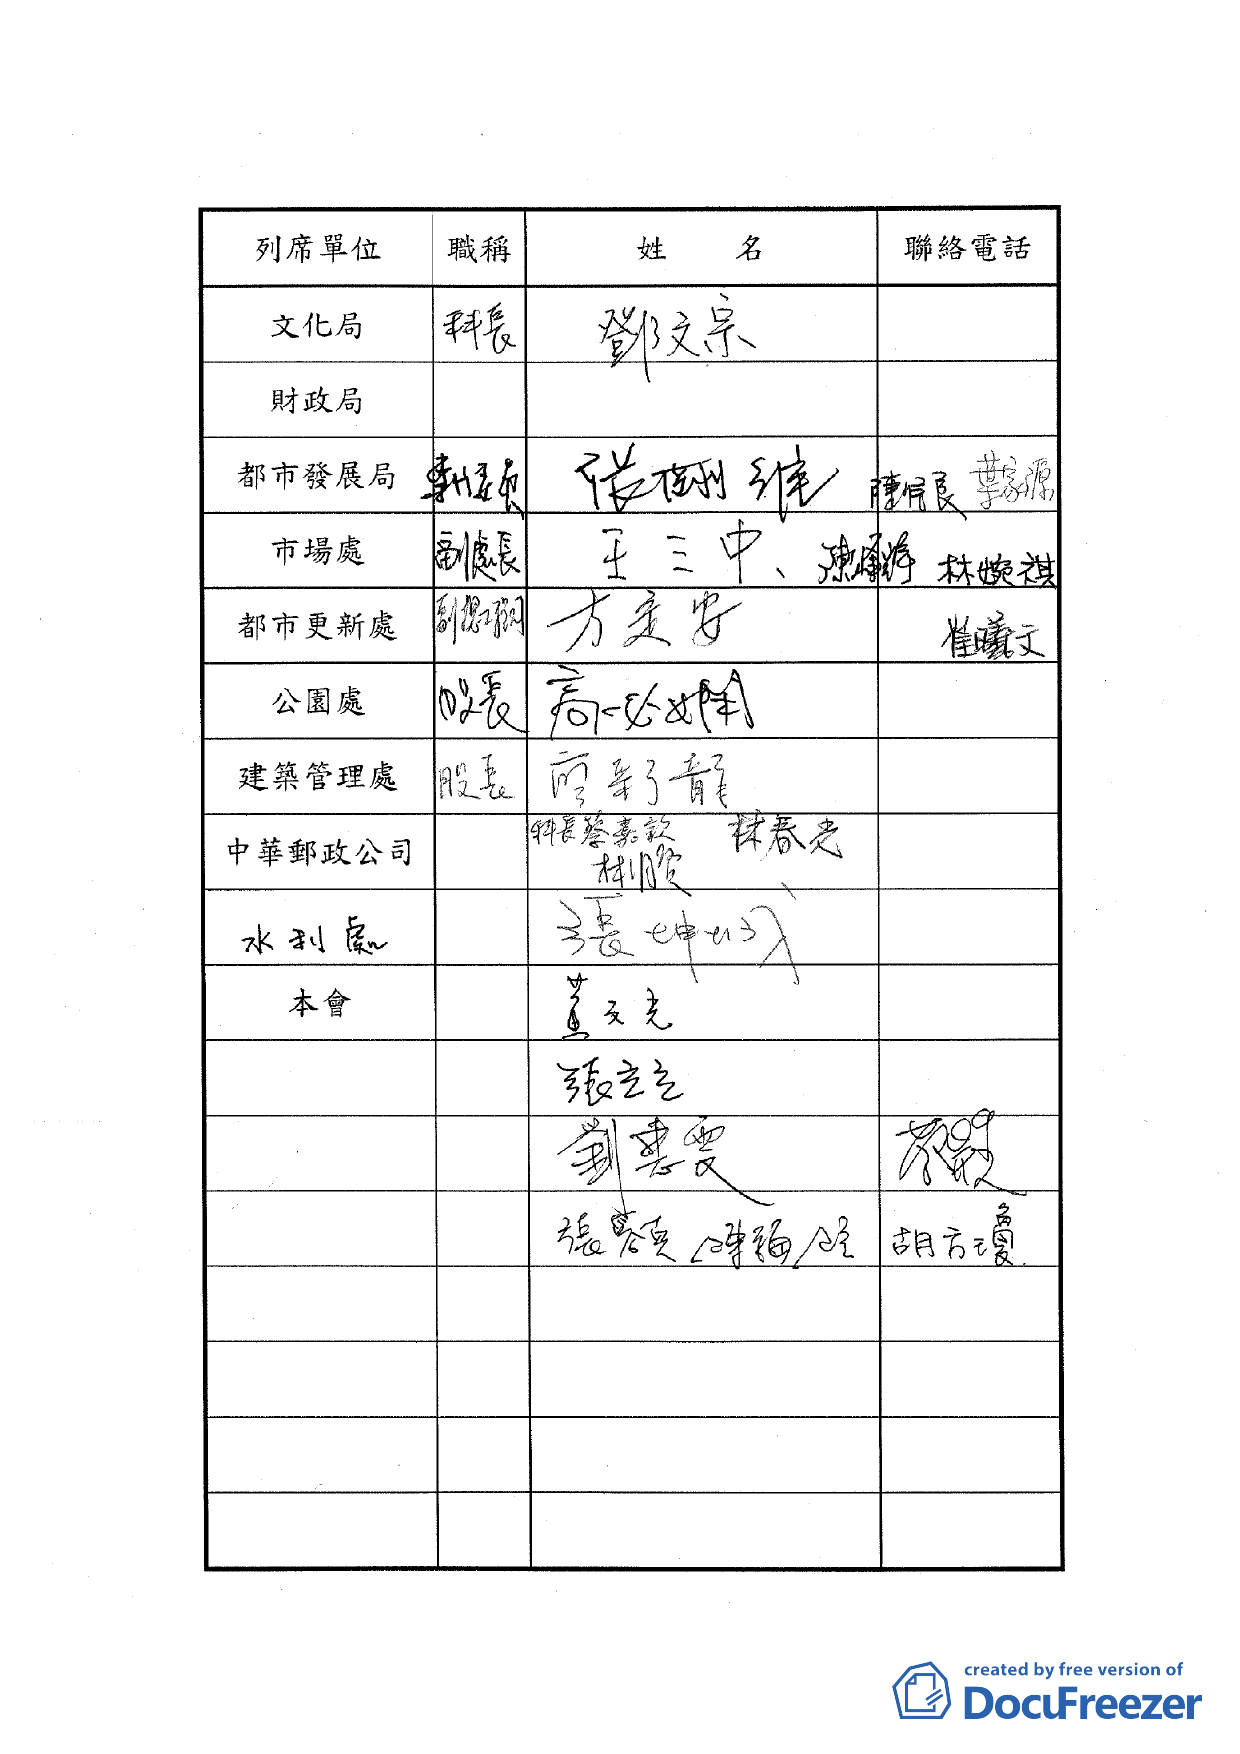 列席單位 職稱 姓 名 聯絡電話
文化局 科長 鄧文宗
財政局
都市發展局 葉家源
市場處 副處長 王三中、 林婉祺
都市更新處 方定安 崔曦文
公園處 股長 高
建築管理處 股長 廖彩龍
中華郵政公司 科長蔡嘉 林春光
水利處 張坤城
本會 黃文光
張立立
劉惠雯
張蓉真 陳福隆 胡方瓊
created by free version of
DocuFreezer